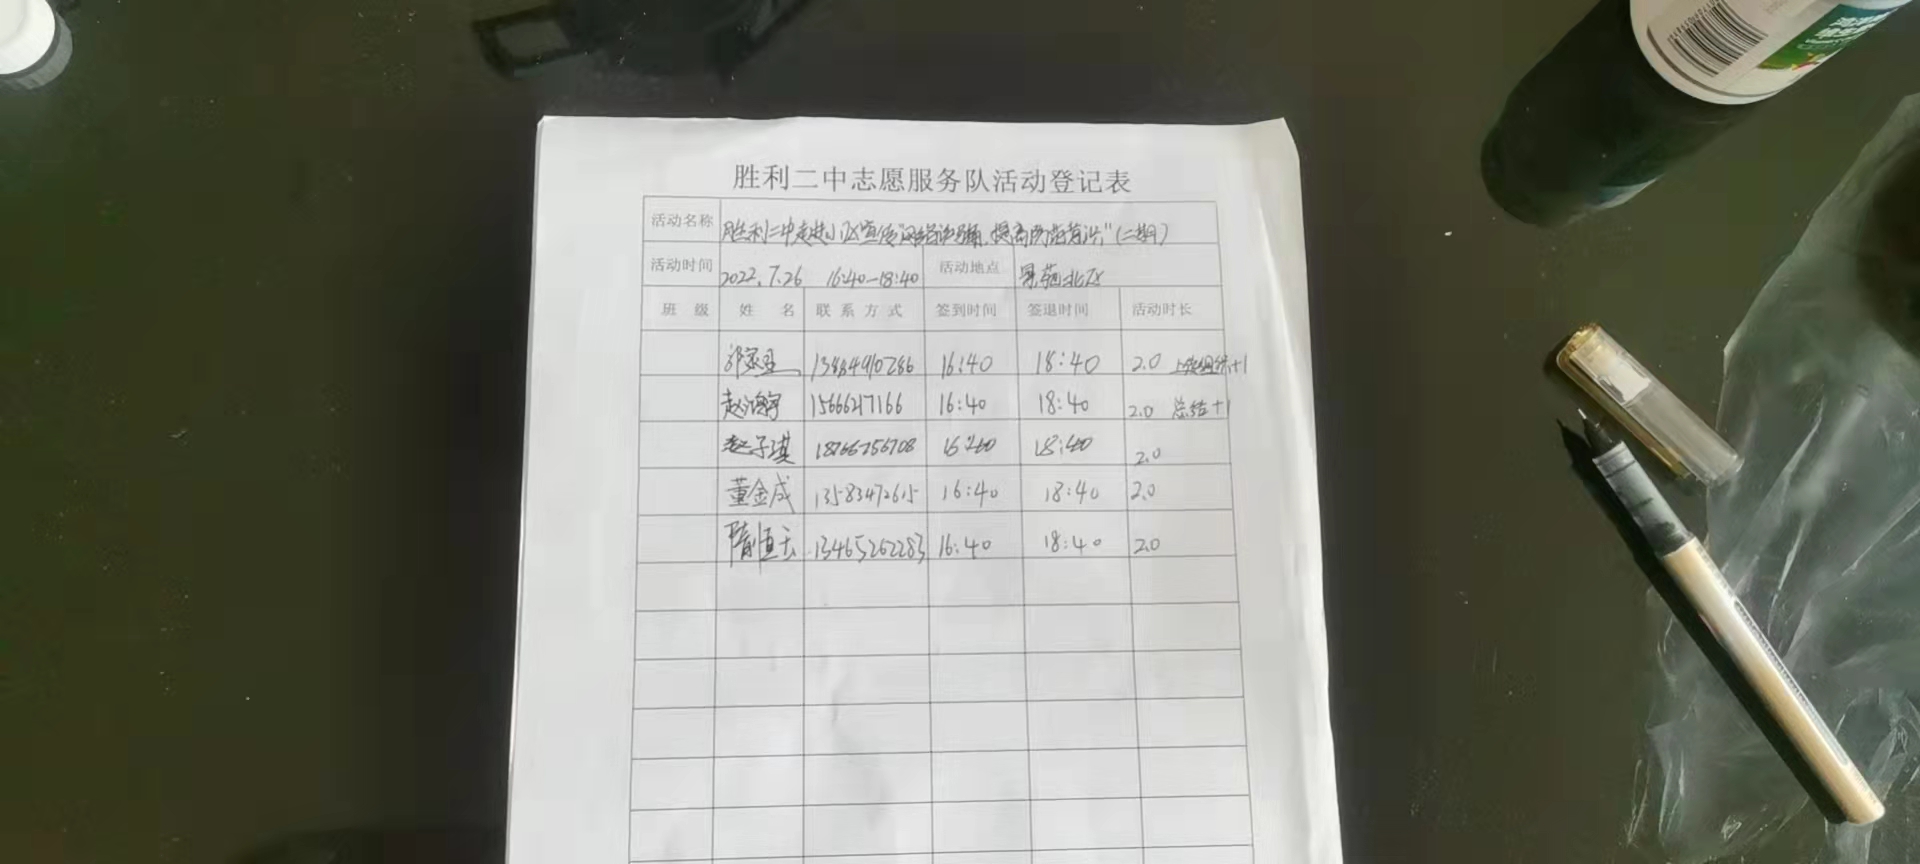 胜利二中志愿服务队活动登记表
活动名称 胜利二中走进小区宣传"网络诈骗,提高防范意识"(二期)
活动时间 2022.7.26 16:40—18:40 活动地点 景苑北区
班 级 姓 名 联 系 方 式 签到时间 签退时间 活动时长
16:40 18:40 2.0 +1
赵鸿宇 15666217166 16:40 18:40 2.0 总结+1
赵子淇 18766756708 16:40 18:40 2.0
董金成 13583472615 16:40 18:40 2.0
隋恒 13465262283 16:40 18:40 2.0